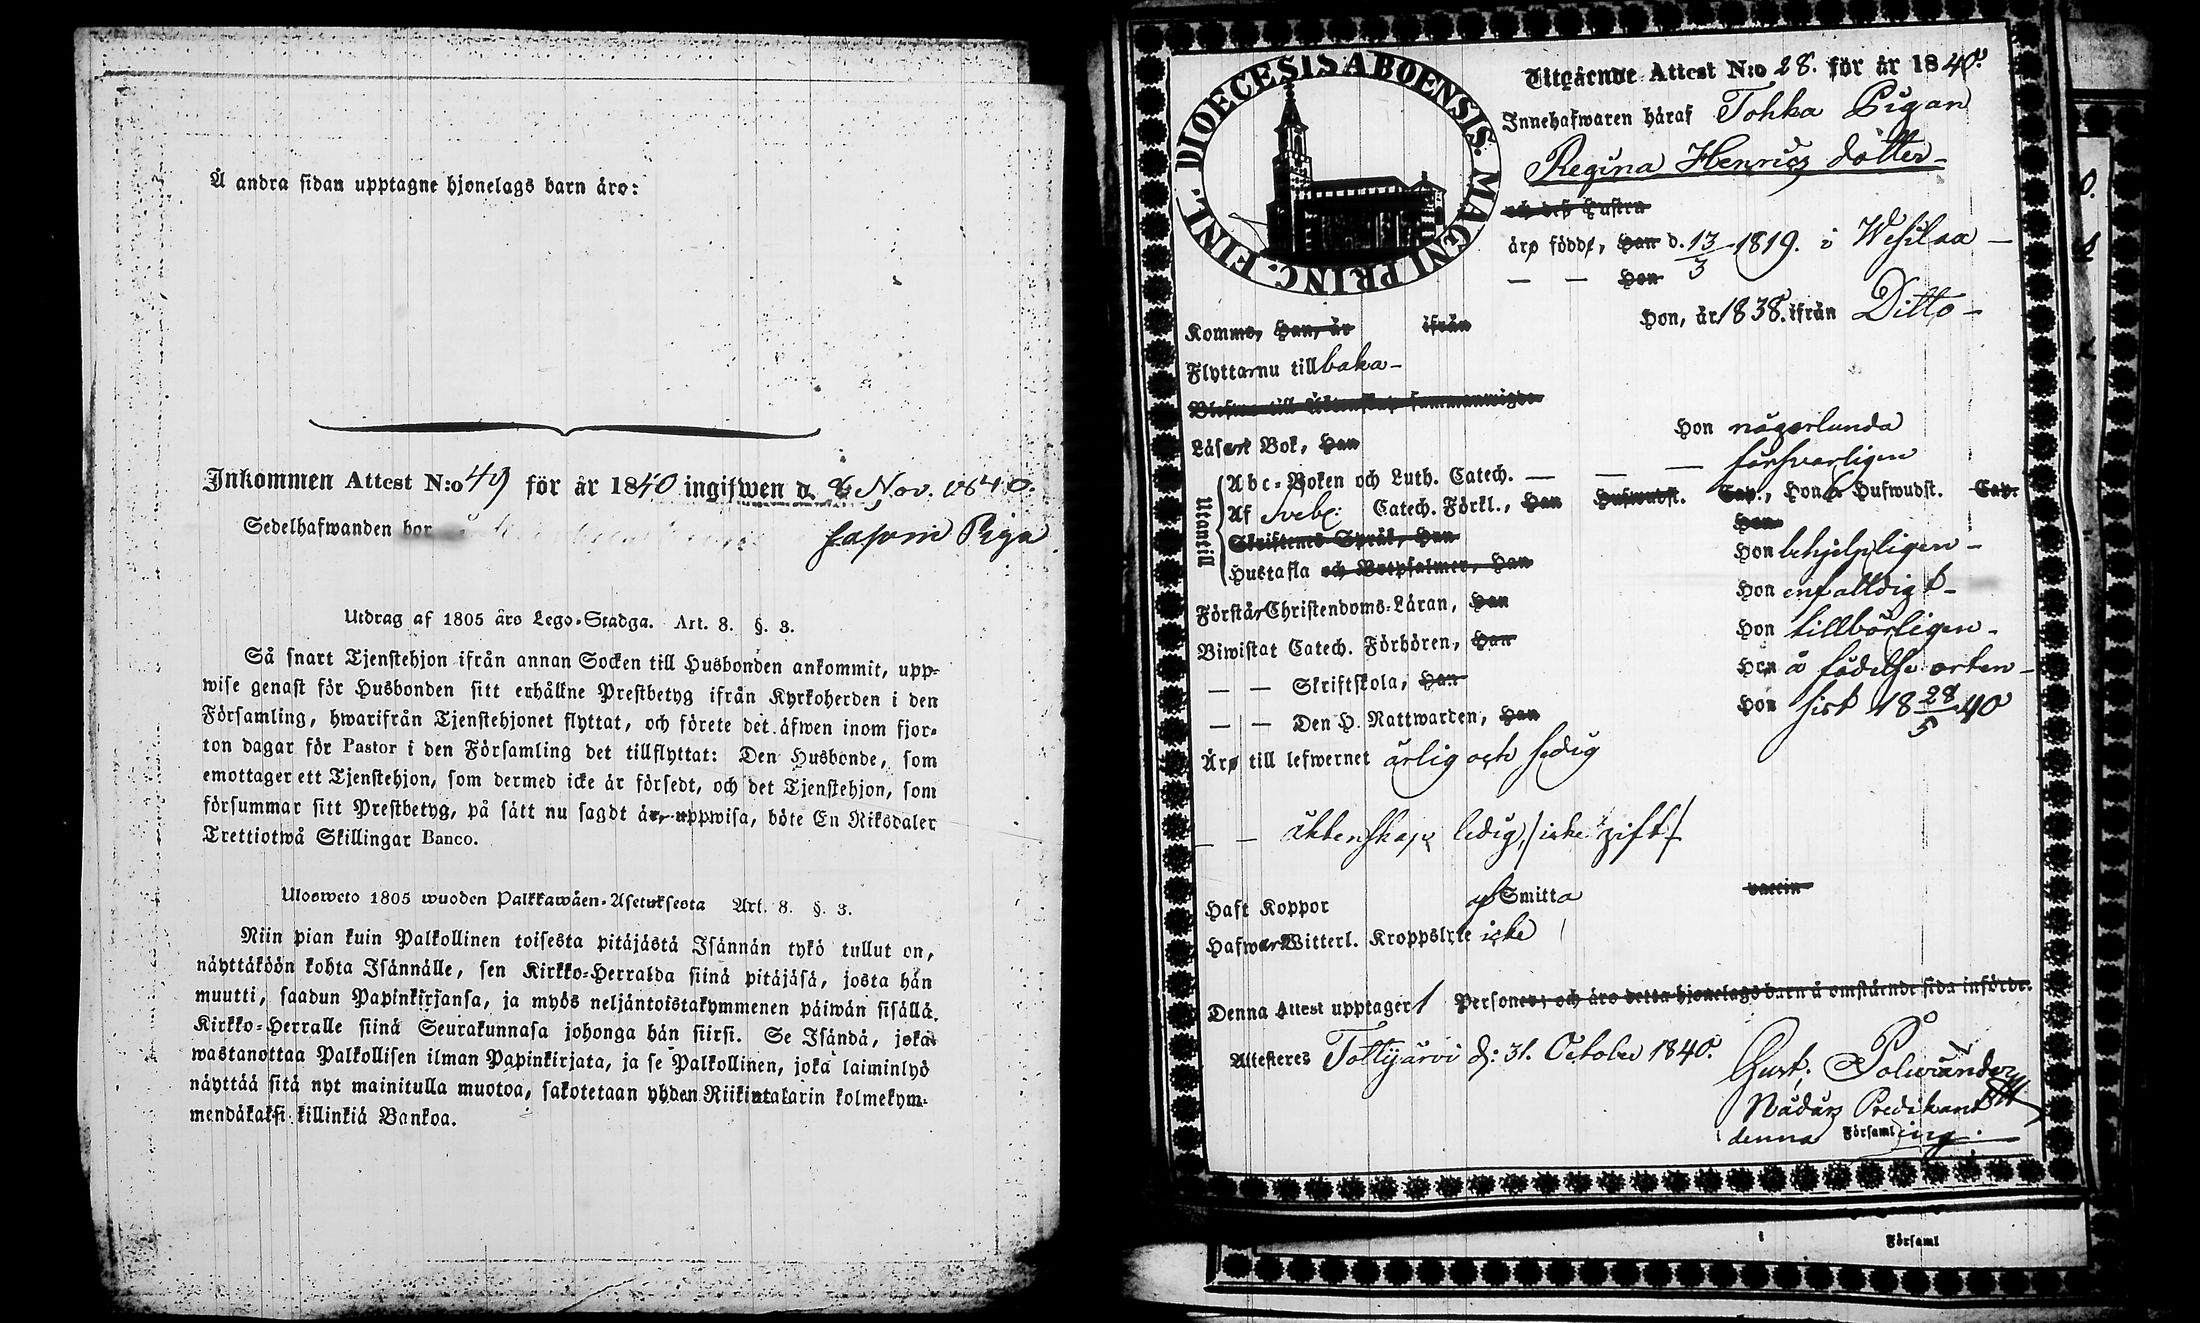 Å andra sidan upptagne hjonelags barn äro:
Inkommen Attest N:o 49 för år 1840 ingifwen d. 8 Nov. 1840.
Sedelhafwanden bor såsom Piga
Utdrag af 1805 års Lego-Stadga. Art. 8. §. 3.
Så snart Tjenstehjon ifrån annan Socken till Husbonden ankommit, upp-
wise genast för Husbonden sitt erhållne Prestbetyg ifrån Kyrkoherden i den
Församling, hwarifrån Tjenstehjonet flyttat, och förete det äfwen inom fjor-
ton dagar för Pastor i den Församling det tillflyttat: Den Husbonde, som
emottager ett Tjenstehjon, som dermed icke är försedt, och det Tjenstehjon, som
försummar sitt Prestbetyg, på sätt nu sagdt är, uppwisa, böte En Riksdaler
Trettiotwå Skillingar Banco.
Ulosweto 1805 wuoden Palkkawäen-Asetuksesta Art. 8. §. 3.
Niin pian kuin Palkollinen toisesta pitäjästä Isännän tykö tullut on,
näyttäköön kohta Isännälle, sen Kirkko-Herralda siinä pitäjäsä, josta hän
muutti, saadun Papinkirjansa, ja myös neljäntoistakymmenen päiwän sisällä,
Kirkko-Herralle siinä Seurakunnasa johonga hän siirsi. Se Isändä, joka
wastanottaa Palkollisen ilman Papinkirjata, ja se Palkollinen, joka laiminlyö
näyttää sitä nyt mainitulla muotoa, sakotetaan yhden Riikintalarin kolmekym-
mendäkaksi killinkiä Bankoa.
DIOECESIS ABOENSIS. MAGNI PRINC. FINL.
Utgående Attest N:o 28. för år 1840.
Innehafwaren häraf Tohka Pigan
Regina Henrics dotter
och deß Hustru
äro födde, Han d. 13/3 1819. i Wesilax
— — Hon
Komme, Han, år ifrån Hon, år 1838. ifrån Ditto
Flytta nu tillbaka
Läser Bok, Han Hon någorlunda
Utantill
Abc-Boken och Luth. Catech. — — — försvarligen
Af Sveb. Catech. Förkl., Han Hufwudst. Cap., Hon Hufwudst. Cap.
Skriftens Språk, Han Hon
Hustafla och Botpsalmer, Han Hon behjelpligen
Förstår Christendoms-Läran, Han Hon enfaldigt
Biwistat Catech. Förhören, Han Hon tillbörligen
— — Skriftskola, Han Hon å födelse orten
— — Den H. Nattwarden, Han Hon sist 18 28/5 40
Äro till lefwernet ärlig och sedig
— — äktenskap ledig /icke gift/
Haft Koppor af Smitta vaccin
Hafwer Witterl. Kroppslyte icke
Denna Attest upptager 1 Personer; och äro detta hjonelags barn å omstående sida införde.
Attesteres Tottijärvi d: 31. Octobr 1840.
Gust. Polviander
Nådårs Predikant
i denna Församling.
Församl